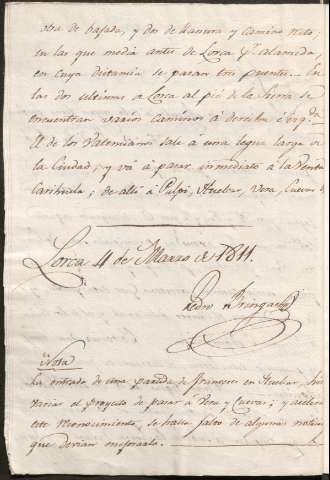 otra de bajada, y dos de llanura y camino recto;
en las que media antes de Lorca la alameda,
en cuya distancia se pasan tres puentes. En
las dos ultimas a Lorca al pié de la Sierra se
encuentran varios caminos á derecha é izqda
El de los Valencianos sale á una legua larga de
la Ciudad, y vá á pasar inmediato á la Venta
Caribuela; de alli á Pulpi, Huebar, Vera, Cuevas
Lorca 4 de Marzo de 1811.
Pedro
Nota
La entrada de una partida de franceses en Huebar, hizo
variar el proyecto de pasar á Vera y Cuevas; y
este reconocimiento, se halla falto de algunas noticias
que devian mejorarlo.